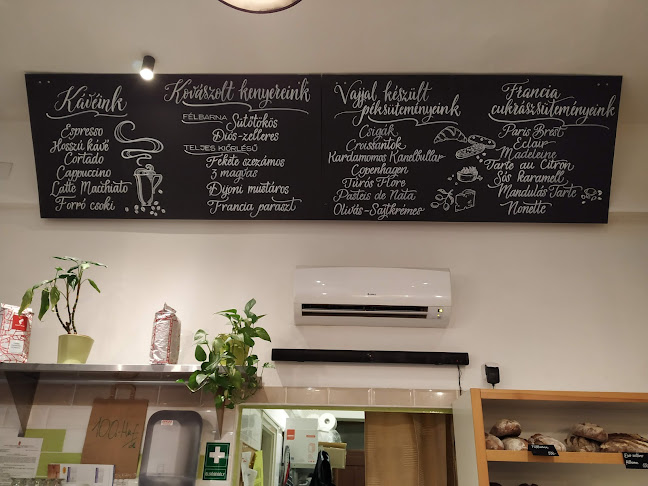 Kávéink
Espresso
Hosszú kávé
Cortado
Cappuccino
Latte Macchiato
Forró csoki
Kovászolt kenyereink
FÉLBARNA
Sütőtökös
Diós-zelleres
TELJES KIŐRLÉSŰ
Fekete szezámos
3 magvas
Dijoni mustáros
Francia paraszt
Vajjal készült
péksüteményeink
Csigák
Croissantok
Kardamomos Kanelbullar
Copenhagen
Túrós Flore
Pasteis de Nata
Olivás-Sajtkrémes
Francia
cukrászsüteményeink
Paris Brest
Eclair
Madeleine
Tarte au Citron
Sós karamell
Mandulás Tarte
Nonette